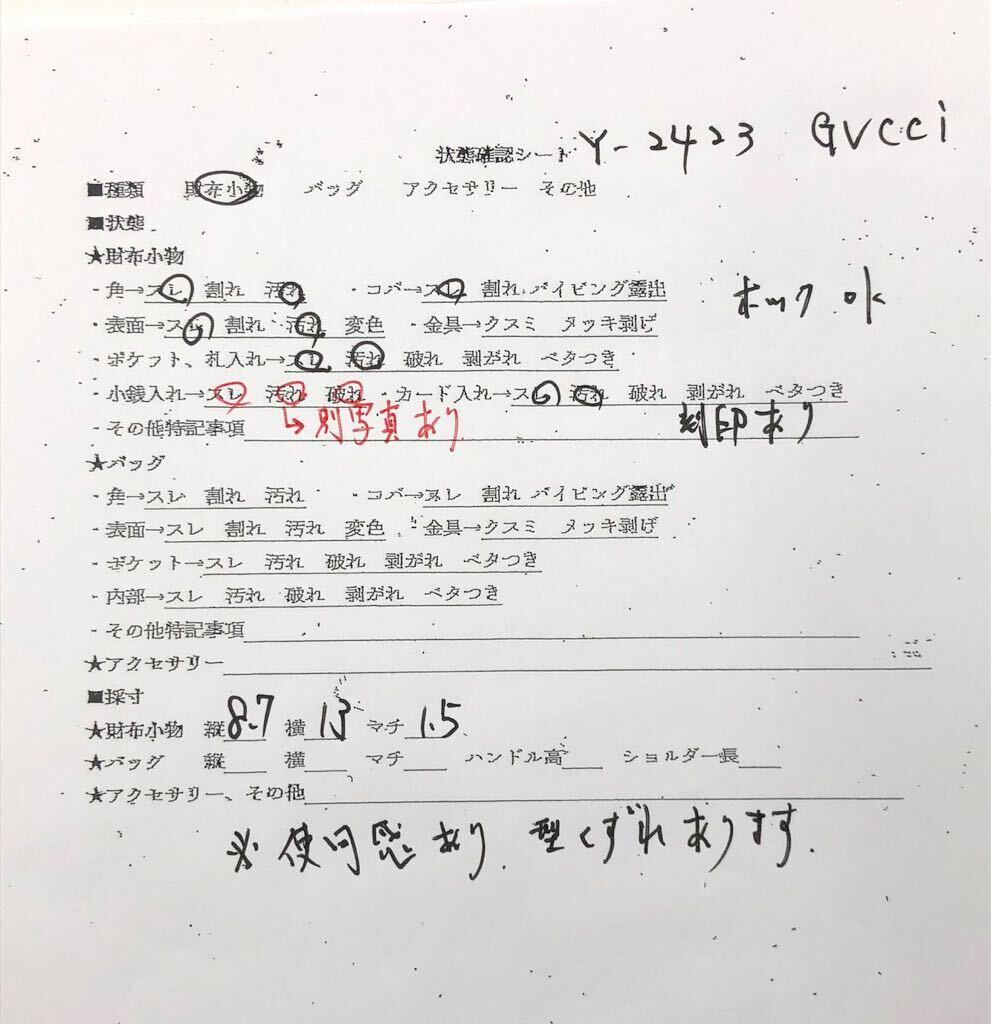 状態確認シート Y-2423 GUCCI
■種類 財布小物 バッグ アクセサリー その他
■状態
★財布小物
・角→スレ 割れ 汚れ ・コバ→スレ 割れ パイピング露出
ホック ok
・表面→スレ 割れ 汚れ 変色 ・金具→クスミ メッキ剥げ
・ポケット、札入れ→スレ 汚れ 破れ 剥がれ ベタつき
・小銭入れ→スレ 汚れ 破れ ・カード入れ→スレ 汚れ 破れ 剥がれ ベタつき
↳別写真あり 刻印あり
・その他特記事項
★バッグ
・角→スレ 割れ 汚れ ・コバ→スレ 割れ パイピング露出
・表面→スレ 割れ 汚れ 変色 ・金具→クスミ メッキ剥げ
・ポケット→スレ 汚れ 破れ 剥がれ ベタつき
・内部→スレ 汚れ 破れ 剥がれ ベタつき
・その他特記事項
★アクセサリー
■採寸
★財布小物 縦8.7 横13 マチ1.5
★バッグ 縦 横 マチ ハンドル高 ショルダー長
★アクセサリー、その他
※使用感あり、型くずれあります.